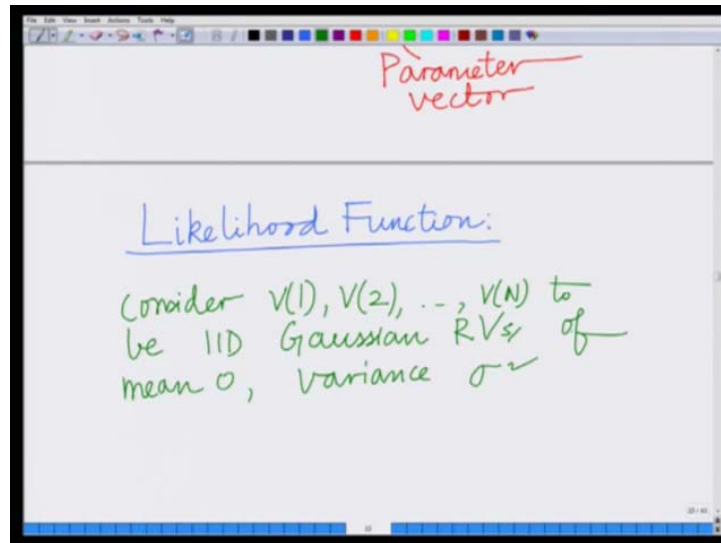 File Edit View Insert Actions Tools Help
Parameter
vector
Likelihood Function:
Consider V(1), V(2), ..., V(N) to
be IID Gaussian RVs, of
mean 0, variance σ²